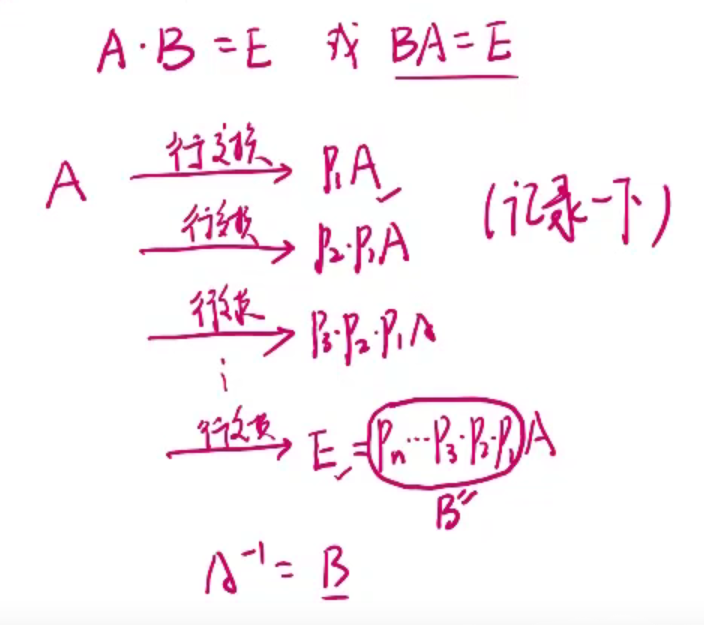 A·B=E 或 BA=E
A 行变换 P₁A
(记录一下)
行变换 P₂·P₁A
行变换 P₃·P₂·P₁A
⋮
行变换 E=Pₙ⋯P₃·P₂·P₁A
B
A⁻¹=B